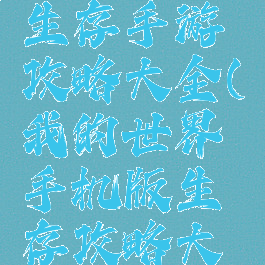 生存手游
攻略大全(
我的世界
手机版生
存攻略大